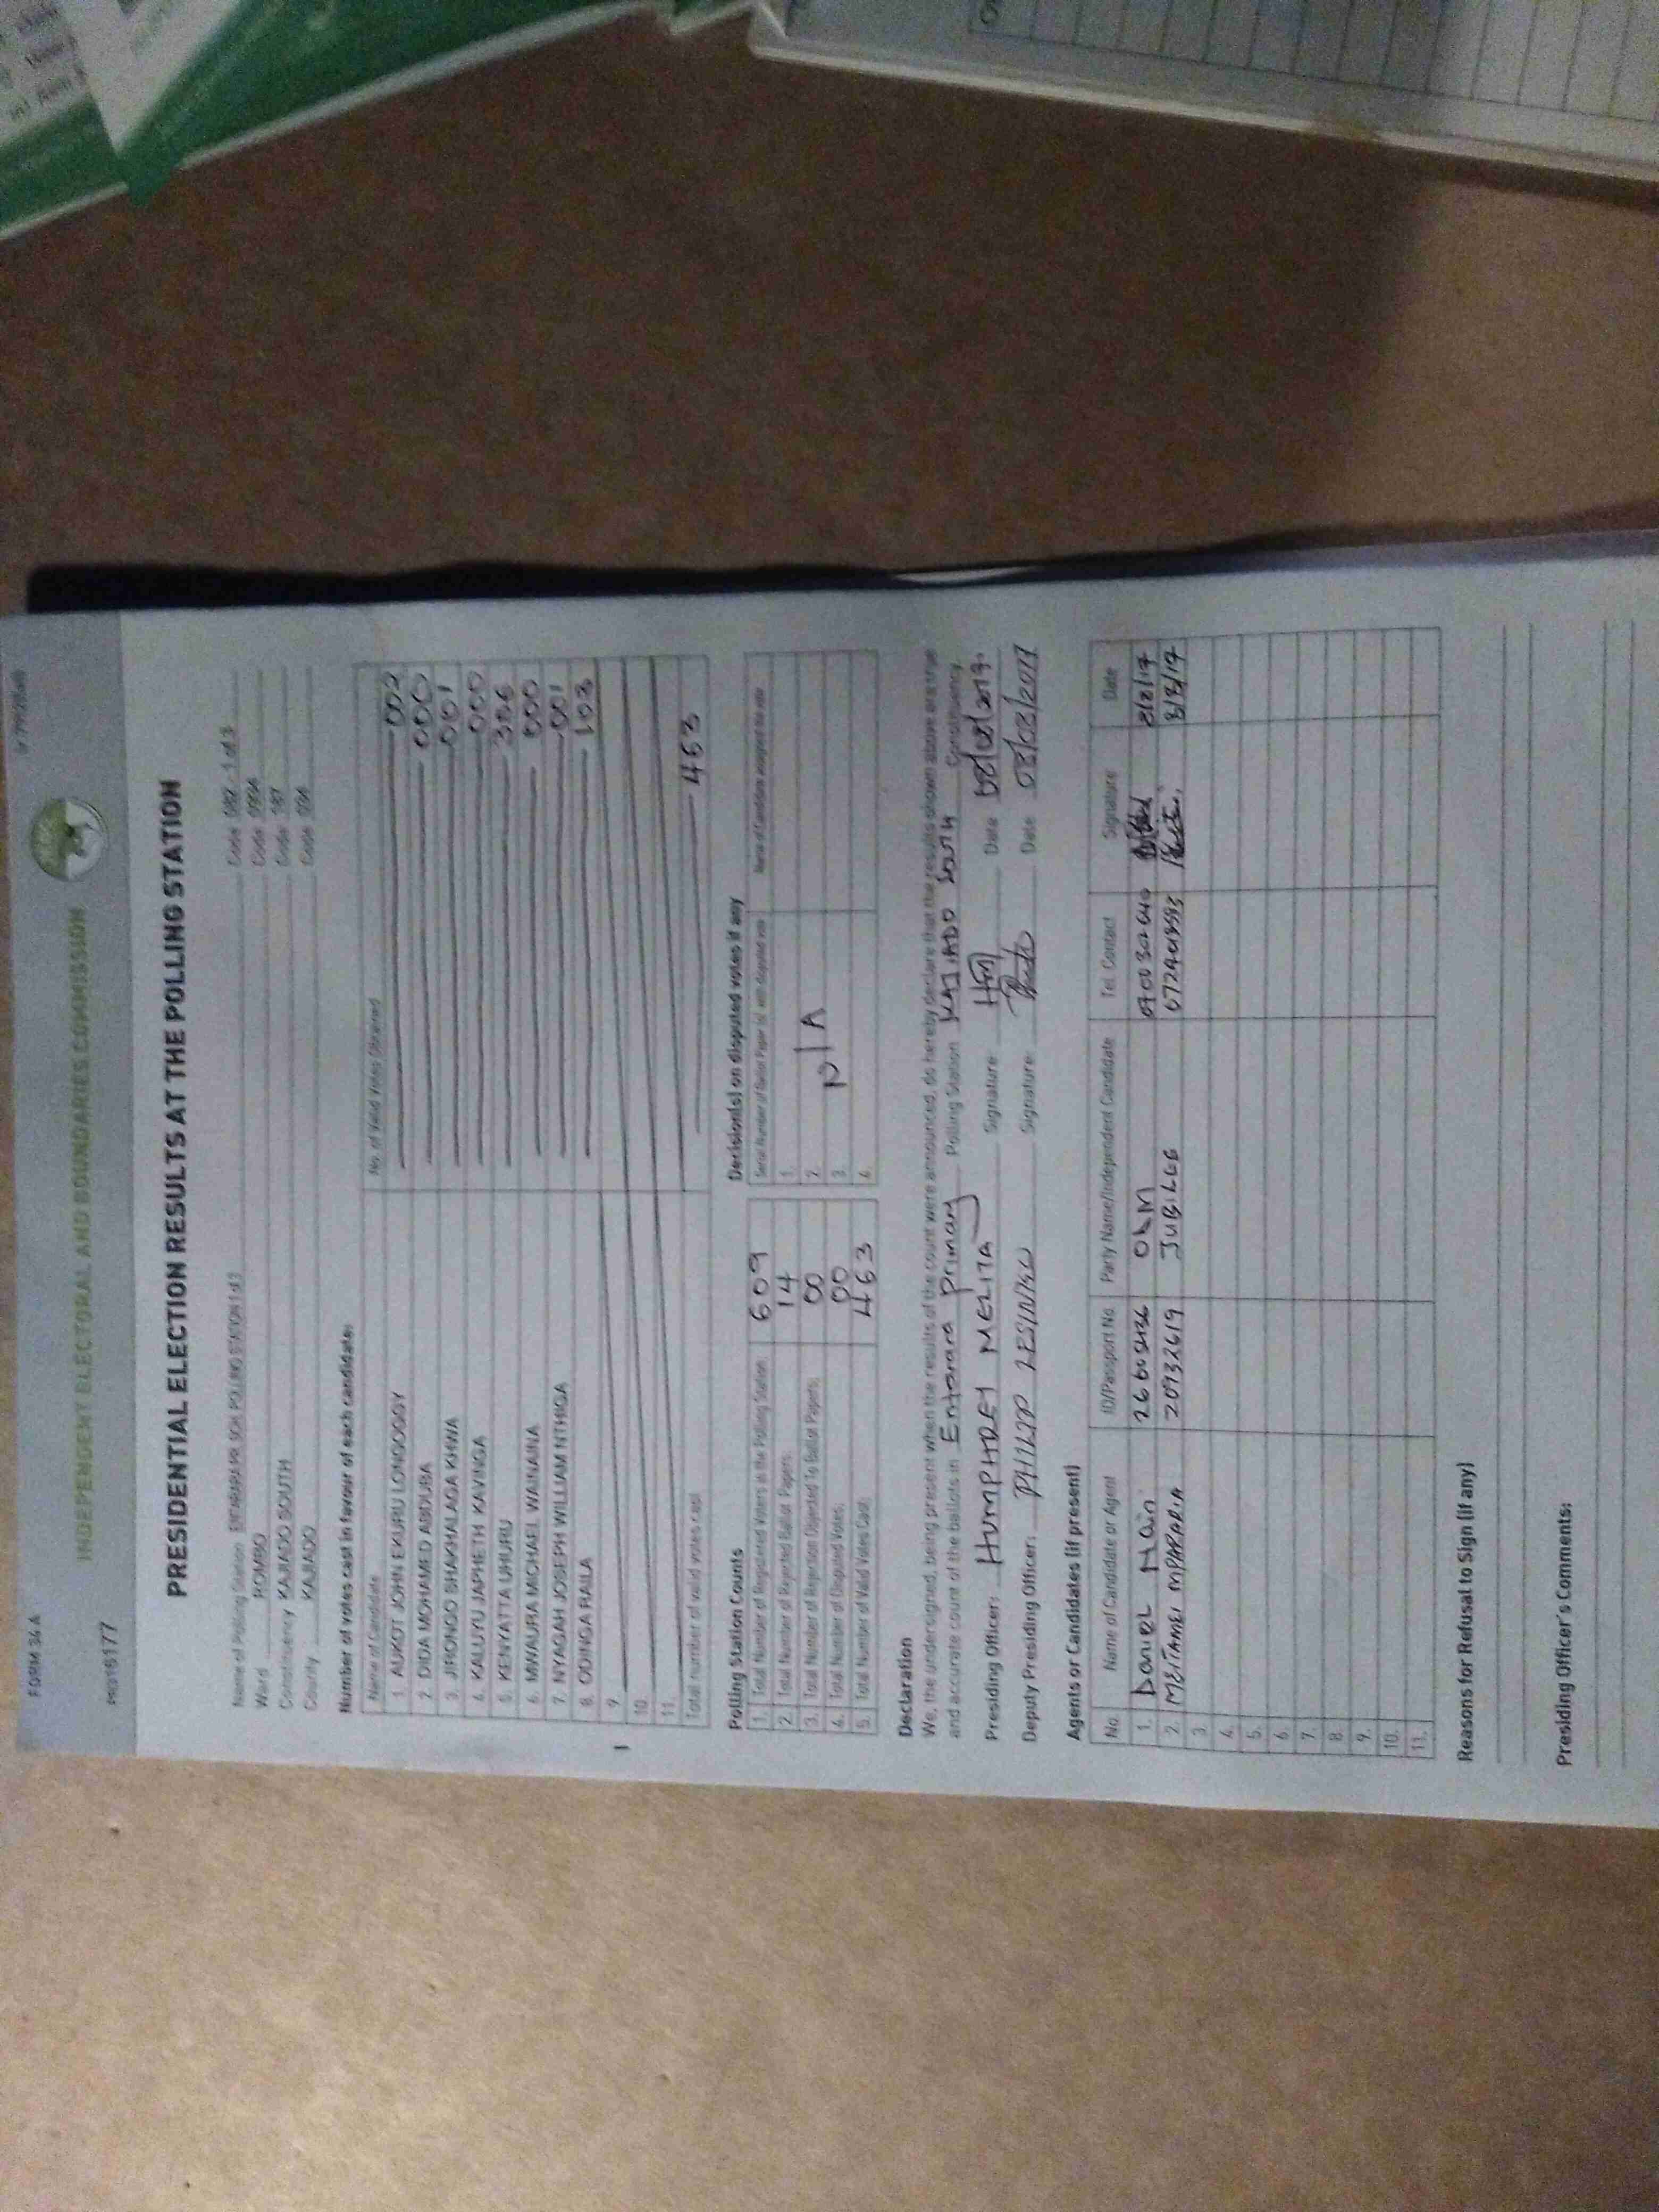 FORM 34 A
INDEPENDENT ELECTORAL AND BOUNDARIES COMMISSION
PRES16177
PRESIDENTIAL ELECTION RESULTS AT THE POLLING STATION
Name of Polling Station ENTARARA PRI SCH POLLING STATION 1 of 3 Code 082 - 1 of 3
Ward ROMBO Code 0934
Constituency KAJIADO SOUTH Code 187
County KAJIADO Code 034
Number of votes cast in favour of each candidate:
Name of Candidate No. of Valid Votes Obtained
1. AUKOT JOHN EKURU LONGOGGY 002
2. DIDA MOHAMED ABDUBA 000
3. JIRONGO SHAKHALAGA KHWA 001
4. KALUYU JAPHETH KAVINGA 000
5. KENYATTA UHURU 356
6. MWAURA MICHAEL WAINAINA 000
7. NYAGAH JOSEPH WILLIAM NTHIGA 001
8. ODINGA RAILA 103
9.
10.
11.
Total number of valid votes cast 463
Polling Station Counts
1. Total Number of Registered Voters in the Polling Station 609
2. Total Number of Rejected Ballot Papers: 14
3. Total Number of Rejection Objected To Ballot Papers: 00
4. Total Number of Disputed Votes: 00
5. Total Number of Valid Votes Cast: 463
Decision(s) on disputed votes if any
Serial Number of Ballot Paper (s) with disputed vote Name of Candidate assigned the vote
1.
2.
3. N/A
4.
Declaration
We, the undersigned, being present when the results of the count were announced, do hereby declare that the results shown above are a true
and accurate count of the ballots in Entarara Primary Polling Station KAJIADO SOUTH Constituency.
Presiding Officer: HUMPHREY MELITA Signature: Date 08/08/2017.
Deputy Presiding Officer: PHILIP Signature: Date 08/08/2017
Agents or Candidates (if present)
No. Name of Candidate or Agent ID/Passport No Party Name/Independent Candidate Tel. Contact Signature Date
1. DANIEL 26605436 ODM 8/8/17
2. MEITAMEI MPAPARIA 20932619 JUBILEE 8/8/17
3.
4.
5.
6.
7.
8.
9.
10.
11.
Reasons for Refusal to Sign (if any)
Presiding Officer's Comments: